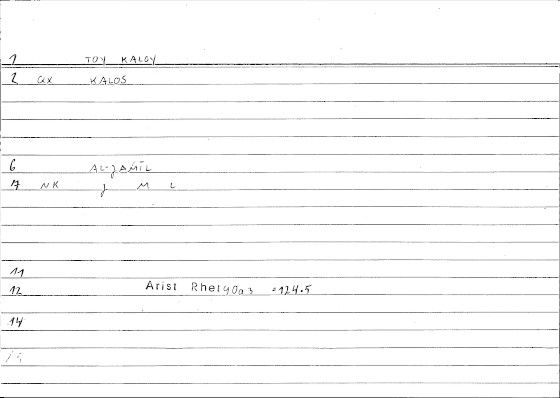 1 TOY KALOY
2 ax KALOS
6 AL-JAMIL
7 NK J M L
11
12 Arist Rhet 90a3 =124.5
14